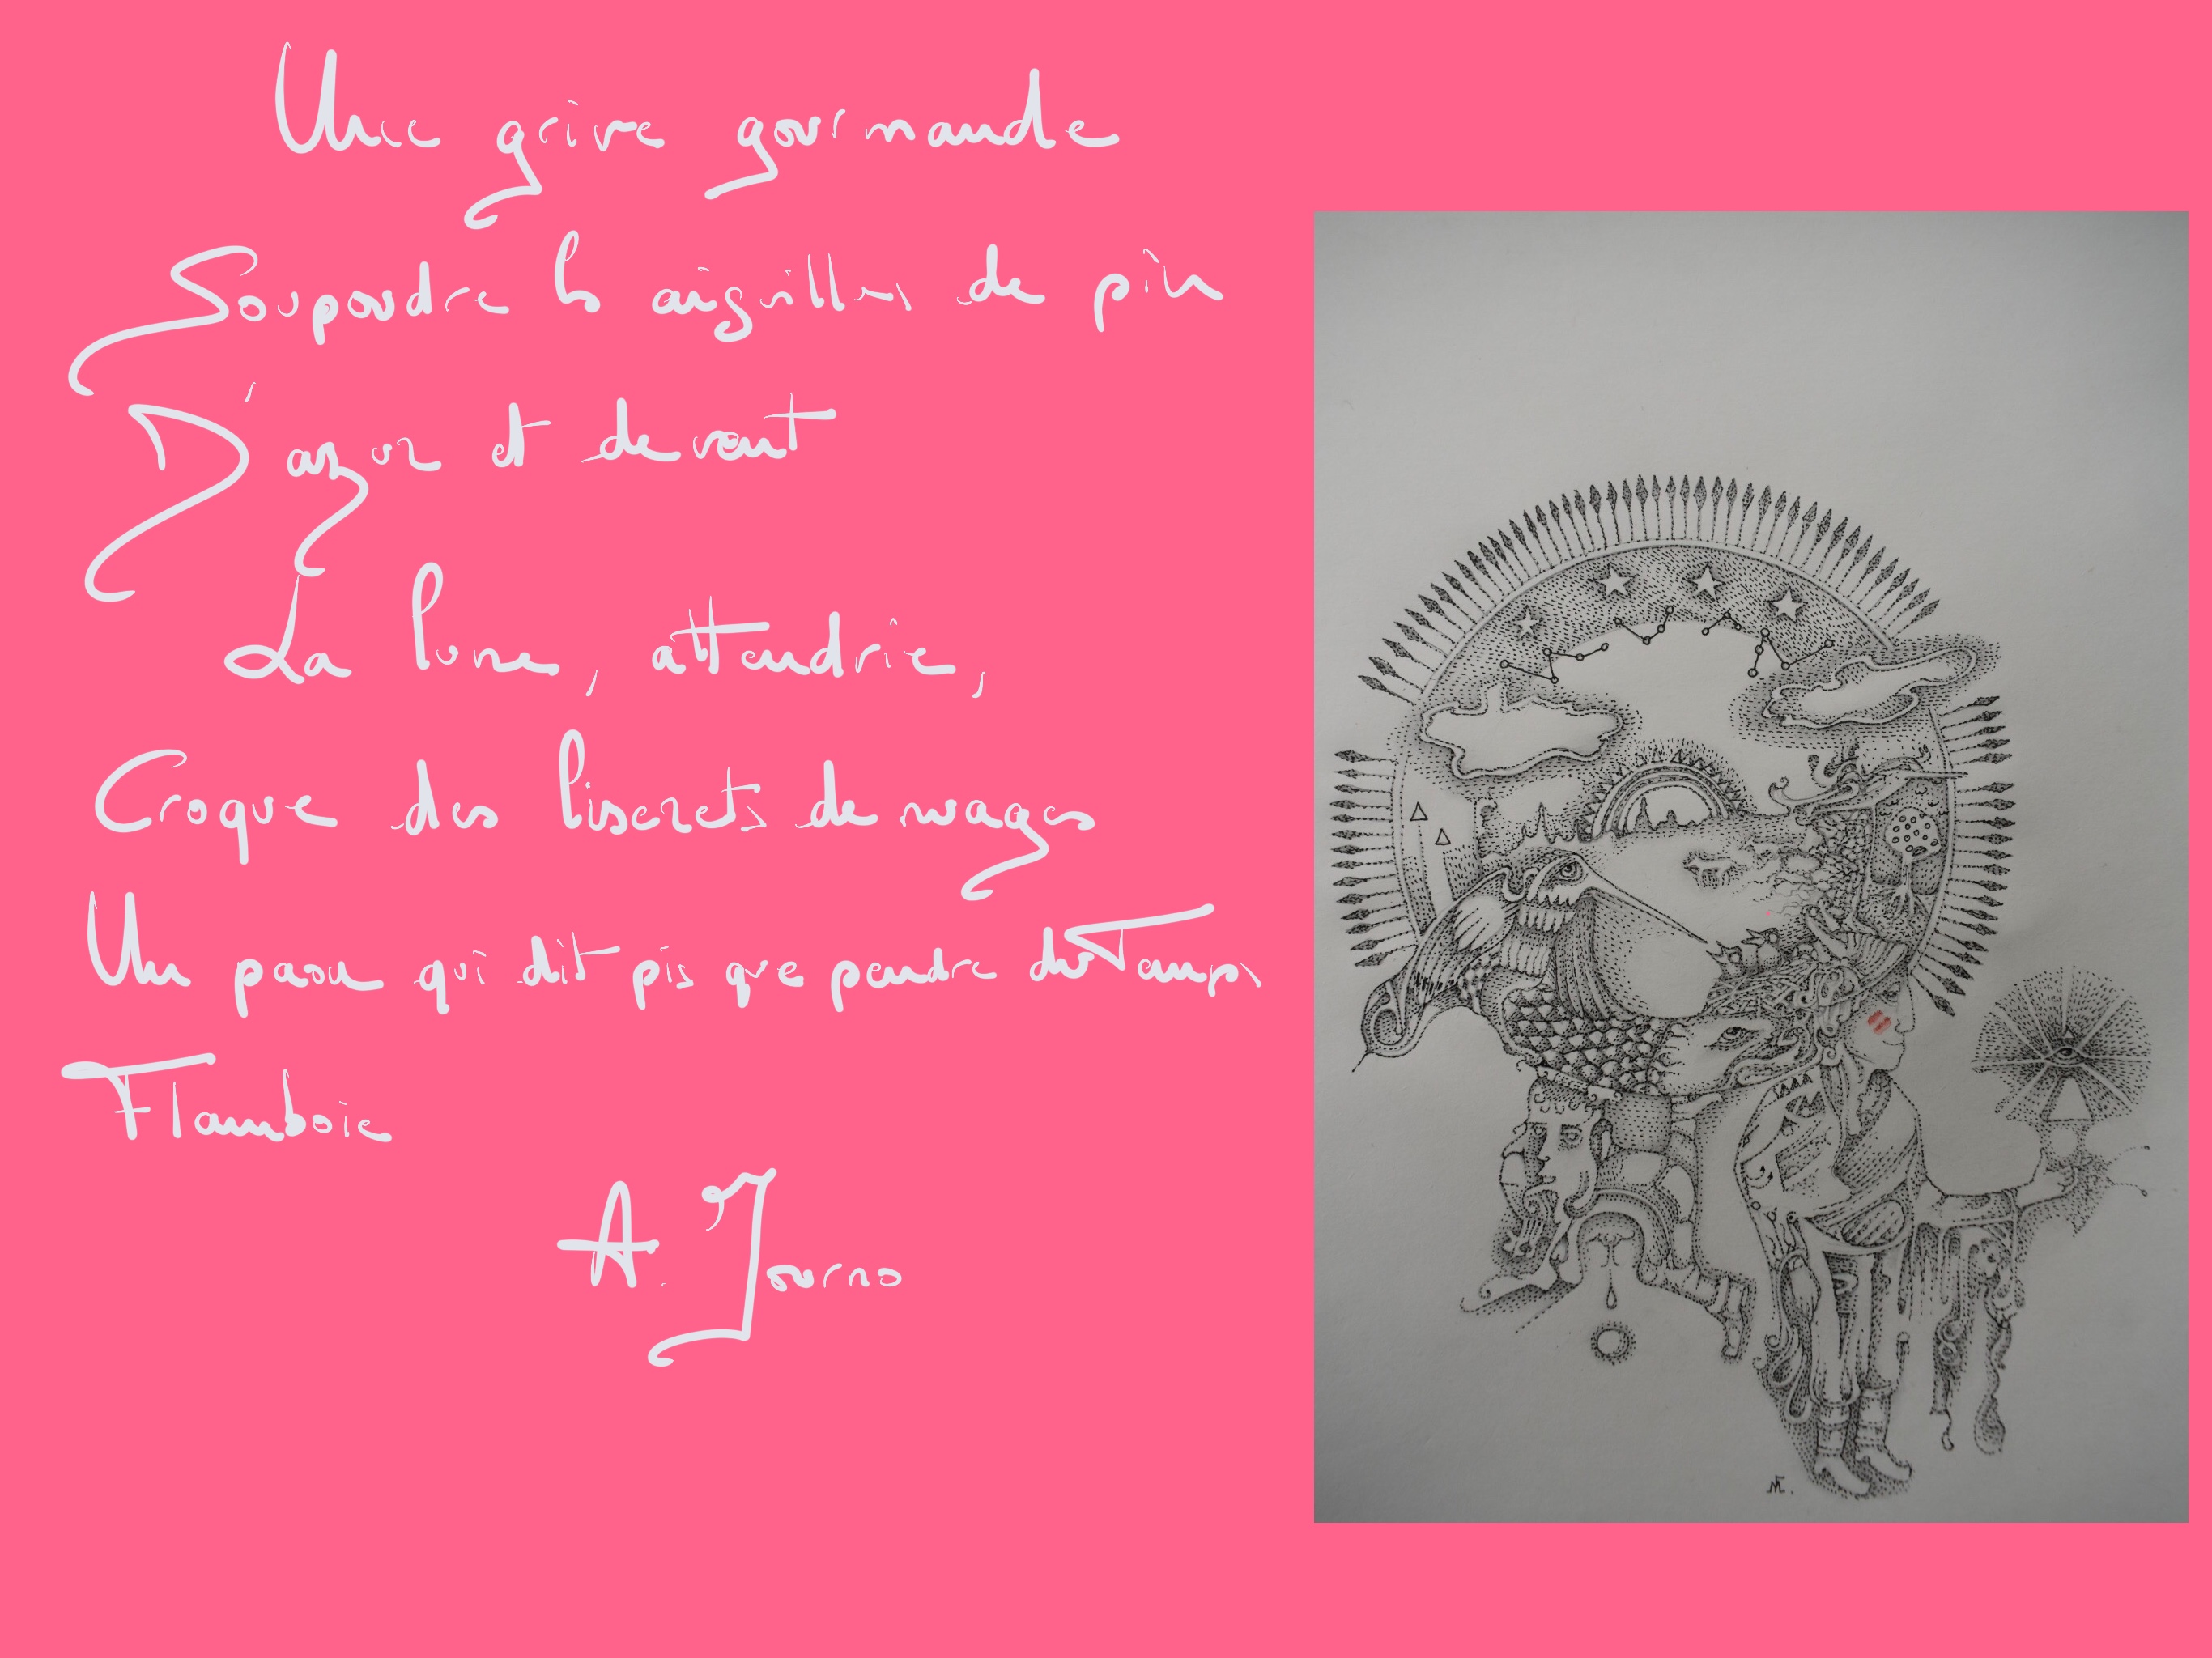 Une grive gourmande
Soupoudre les aiguilles de pin
D'azur et de vent
La lune, attendrie,
Croque des liserets de nuages
Un paon qui dit pis que pendre du Temps
Flamboie
A. Journo